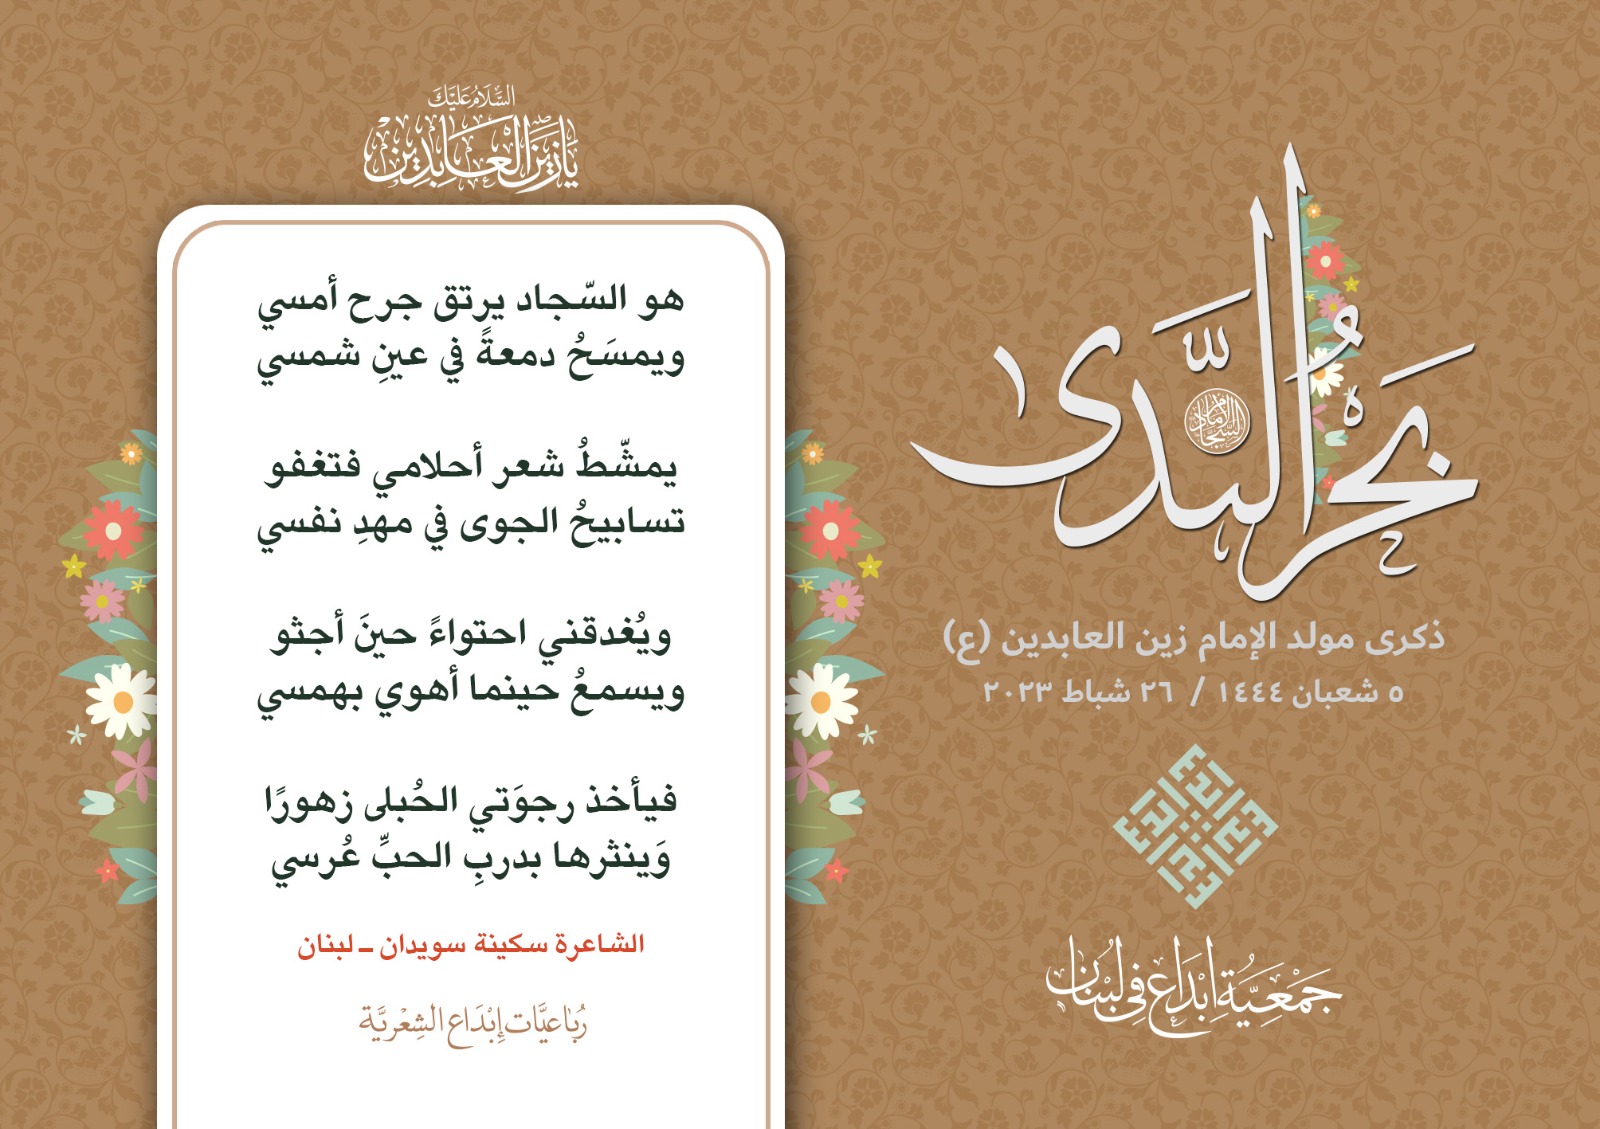 بَحْرُ النَّدَى
الإمام السجاد
ذكرى مولد الإمام زين العابدين (ع)
٥ شعبان ١٤٤٤ / ٢٦ شباط ٢٠٢٣
إبداع
جَمْعِيَّة إِبْدَاع فِي لُبْنَان
السَّلَامُ عَلَيْكَ
يَا زَيْنَ الْعَابِدِين
هو السّجاد يرتق جرح أمسي
ويمسَحُ دمعةً في عينِ شمسي
يمشّطُ شعر أحلامي فتغفو
تسابيحُ الجوى في مهدِ نفسي
ويُغدقني احتواءً حينَ أجثو
ويسمعُ حينما أهوي بهمسي
فيأخذ رجوَتي الحُبلى زهورًا
وَينثرها بدربِ الحبِّ عُرسي
الشاعرة سكينة سويدان - لبنان
رُبَاعيَّات إِبْدَاع الشِعْريَّة